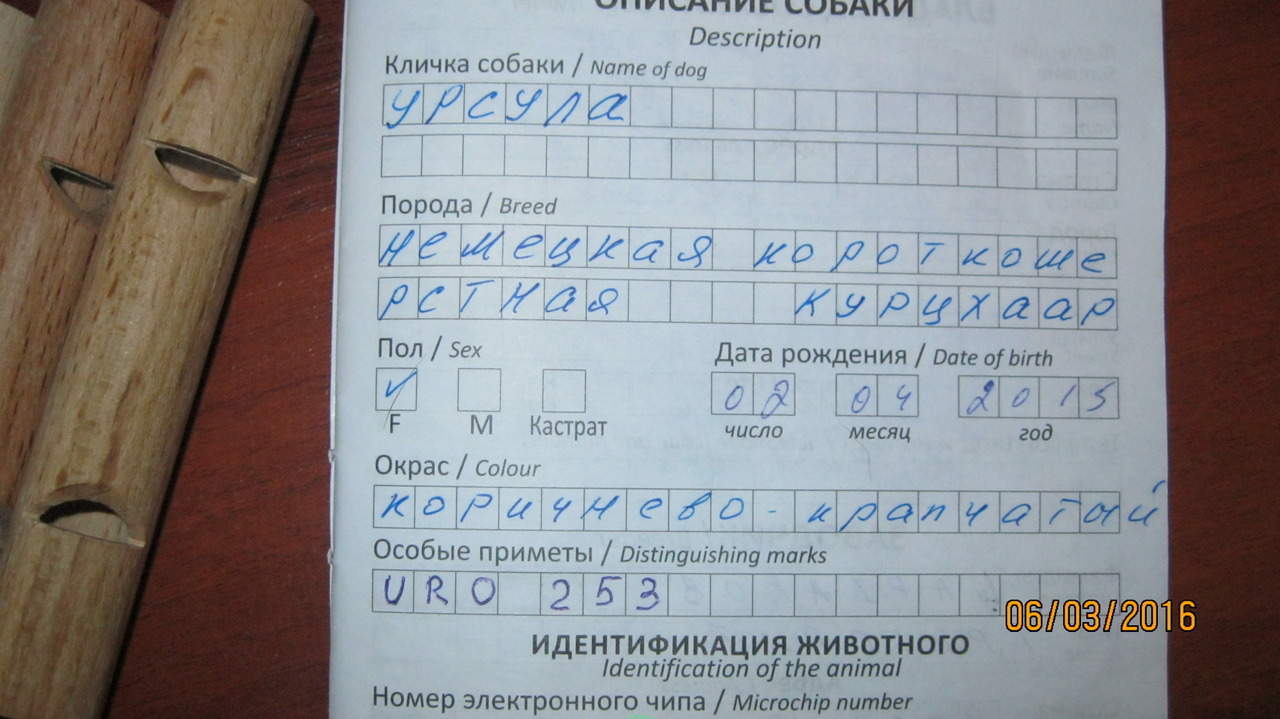 ОПИСАНИЕ СОБАКИ
Description
Кличка собаки / Name of dog
УРСУЛА
Порода / Breed
немецкая короткоше
рстная курцхаар
Пол / Sex
Дата рождения / Date of birth
02 04 2015
F M Кастрат
число месяц год
Окрас / Colour
коричнево-крапчатый
Особые приметы / Distinguishing marks
URO 253
06/03/2016
ИДЕНТИФИКАЦИЯ ЖИВОТНОГО
Identification of the animal
Номер электронного чипа / Microchip number